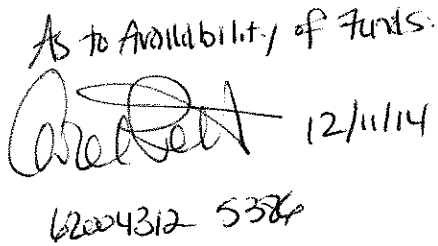 As to Availability of Funds:
12/11/14
62004312 5386